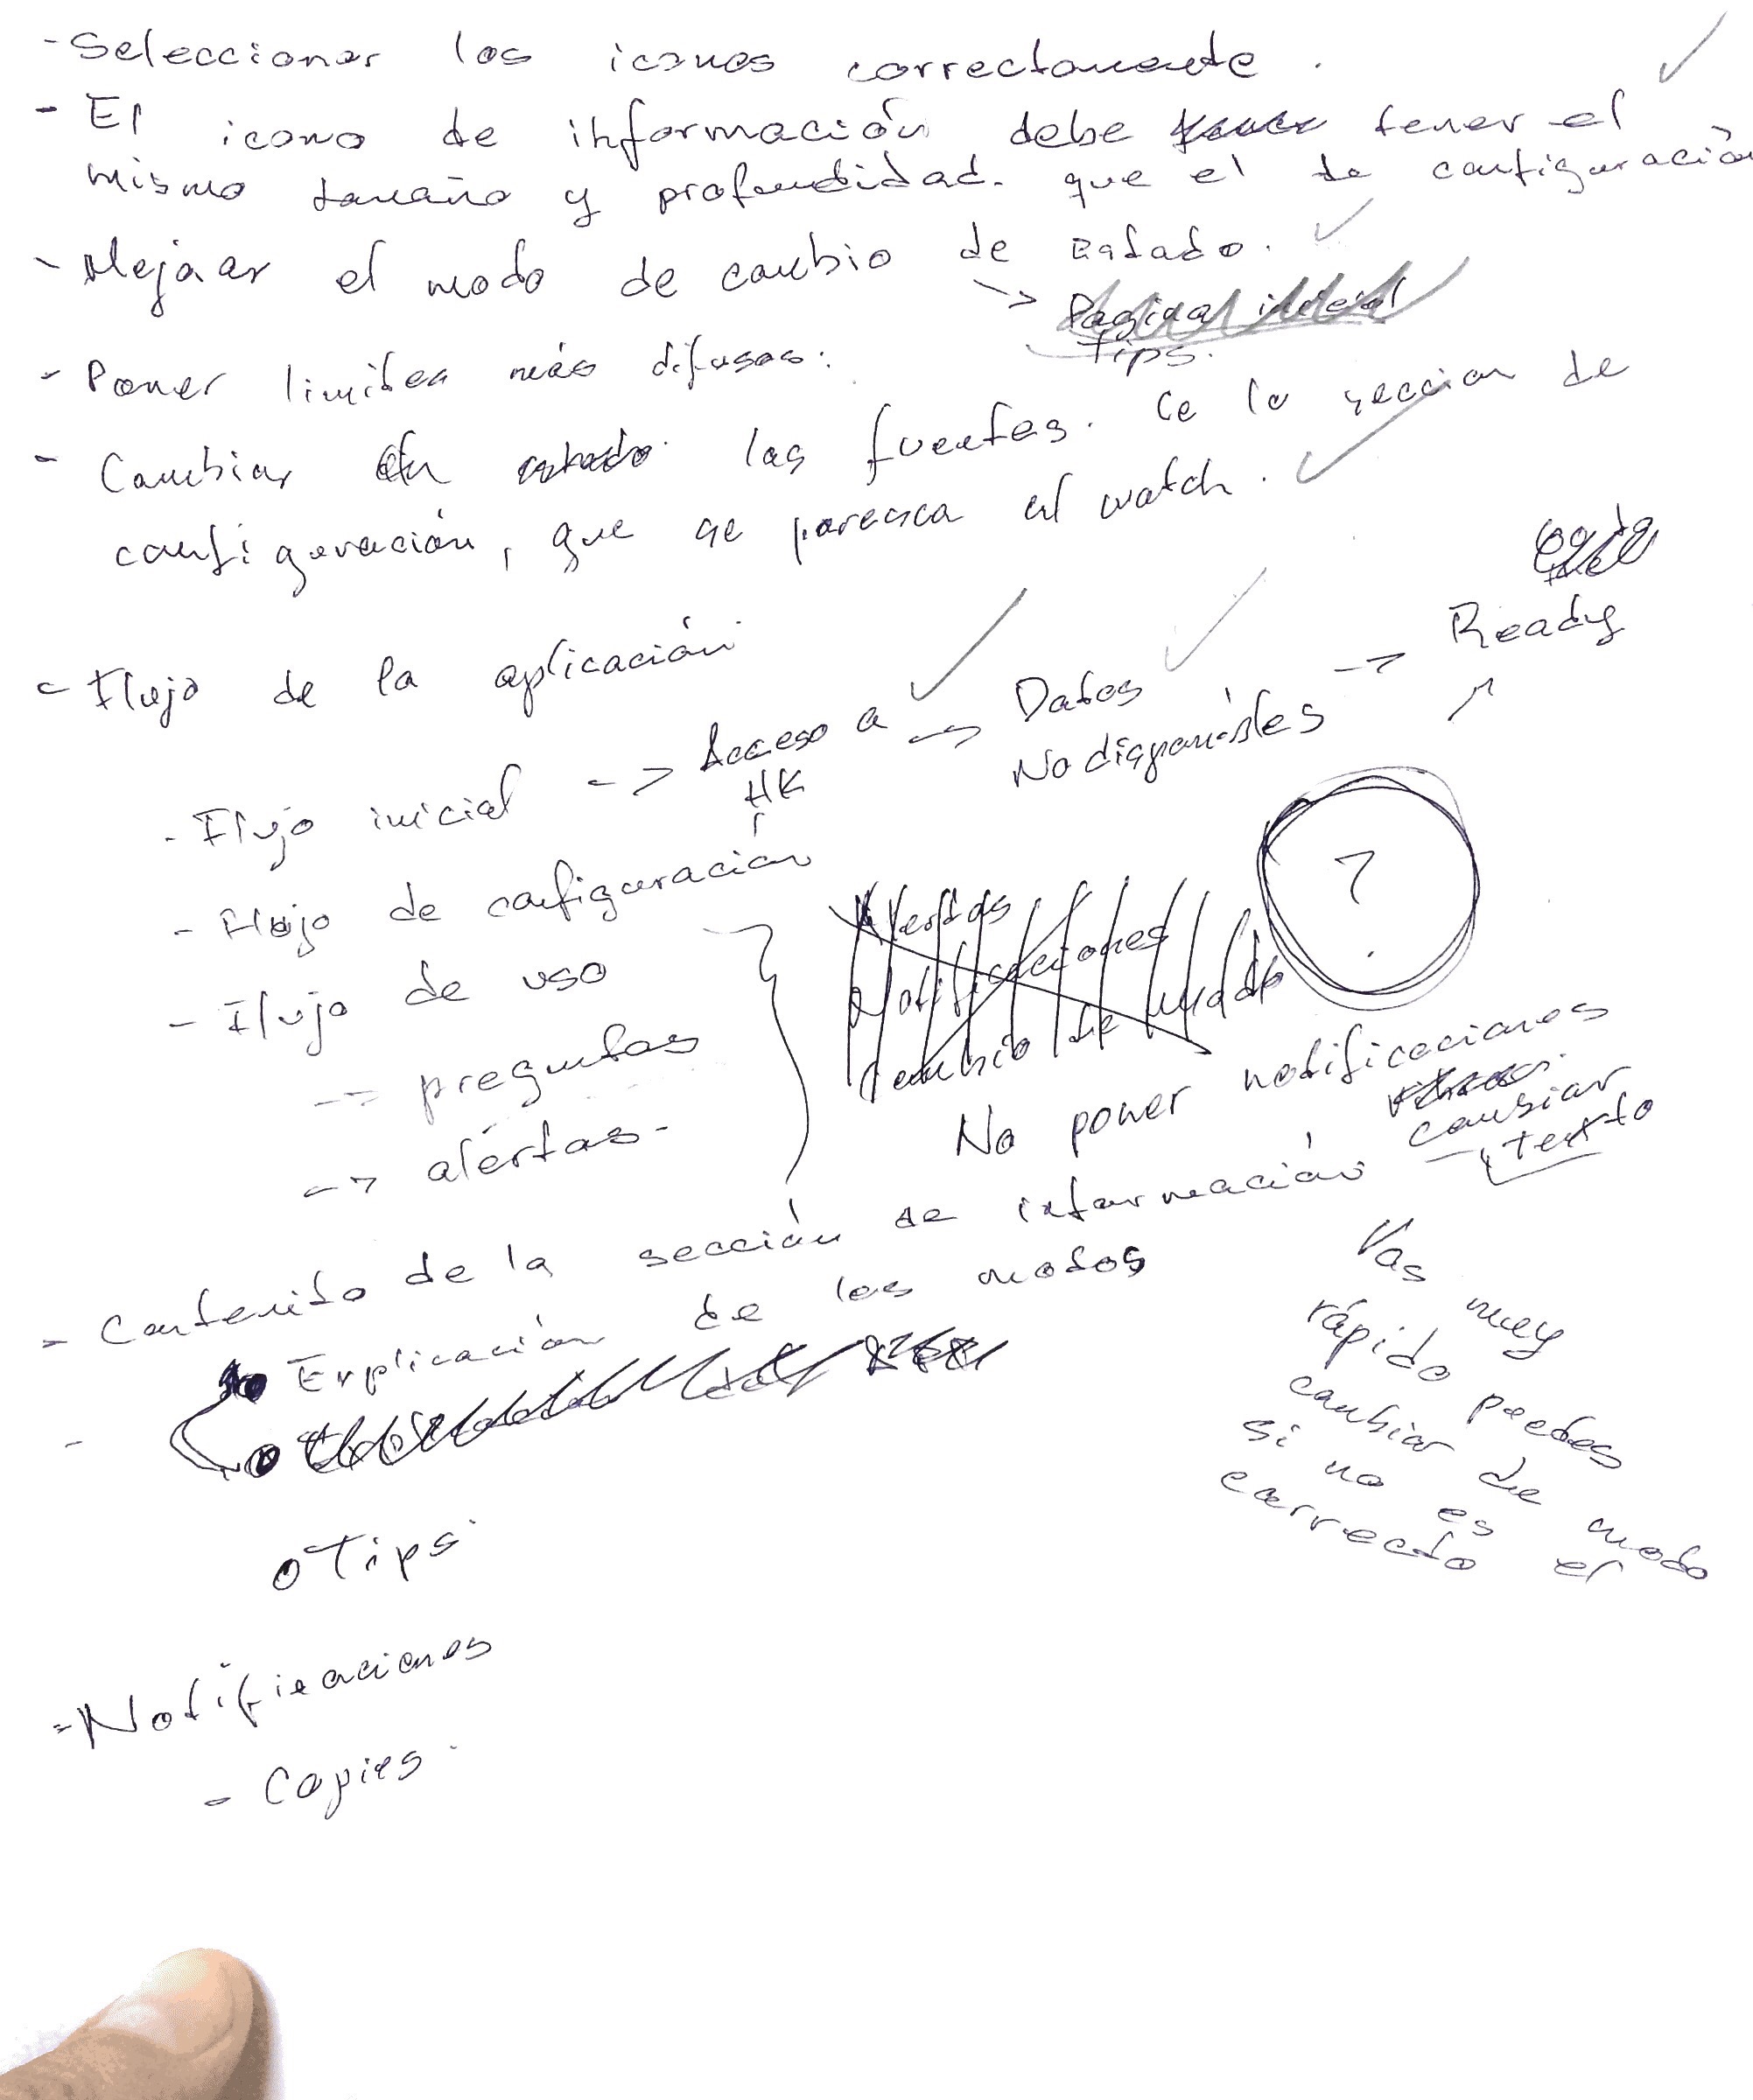 - Seleccionar los iconos correctamente.
- El icono de información debe tener el
mismo tamaño y profundidad. que el de configuración
- Mejorar el modo de cambio de estado.
-> Pagina inicial
Tips.
- Poner limites más difusos.
- Cambiar las fuentes. de la sección de
configuración, que se paresca al watch.
- Flujo de la aplicación
- Flujo inicial -> Acceso a HK -> Datos No disponibles -> Ready
- Flujo de configuración
- Flujo de uso
-> preguntas
-> alertas.
Alertas
Notificaciones
Cambio de modo
?
No poner notificaciones
cambiar
texto
- Contenido de la sección de información
Explicación de los modos
o Tips.
Vas muy
rápido puedes
cambiar de modo
si no es el
correcto
- Notificaciones
- Copies.